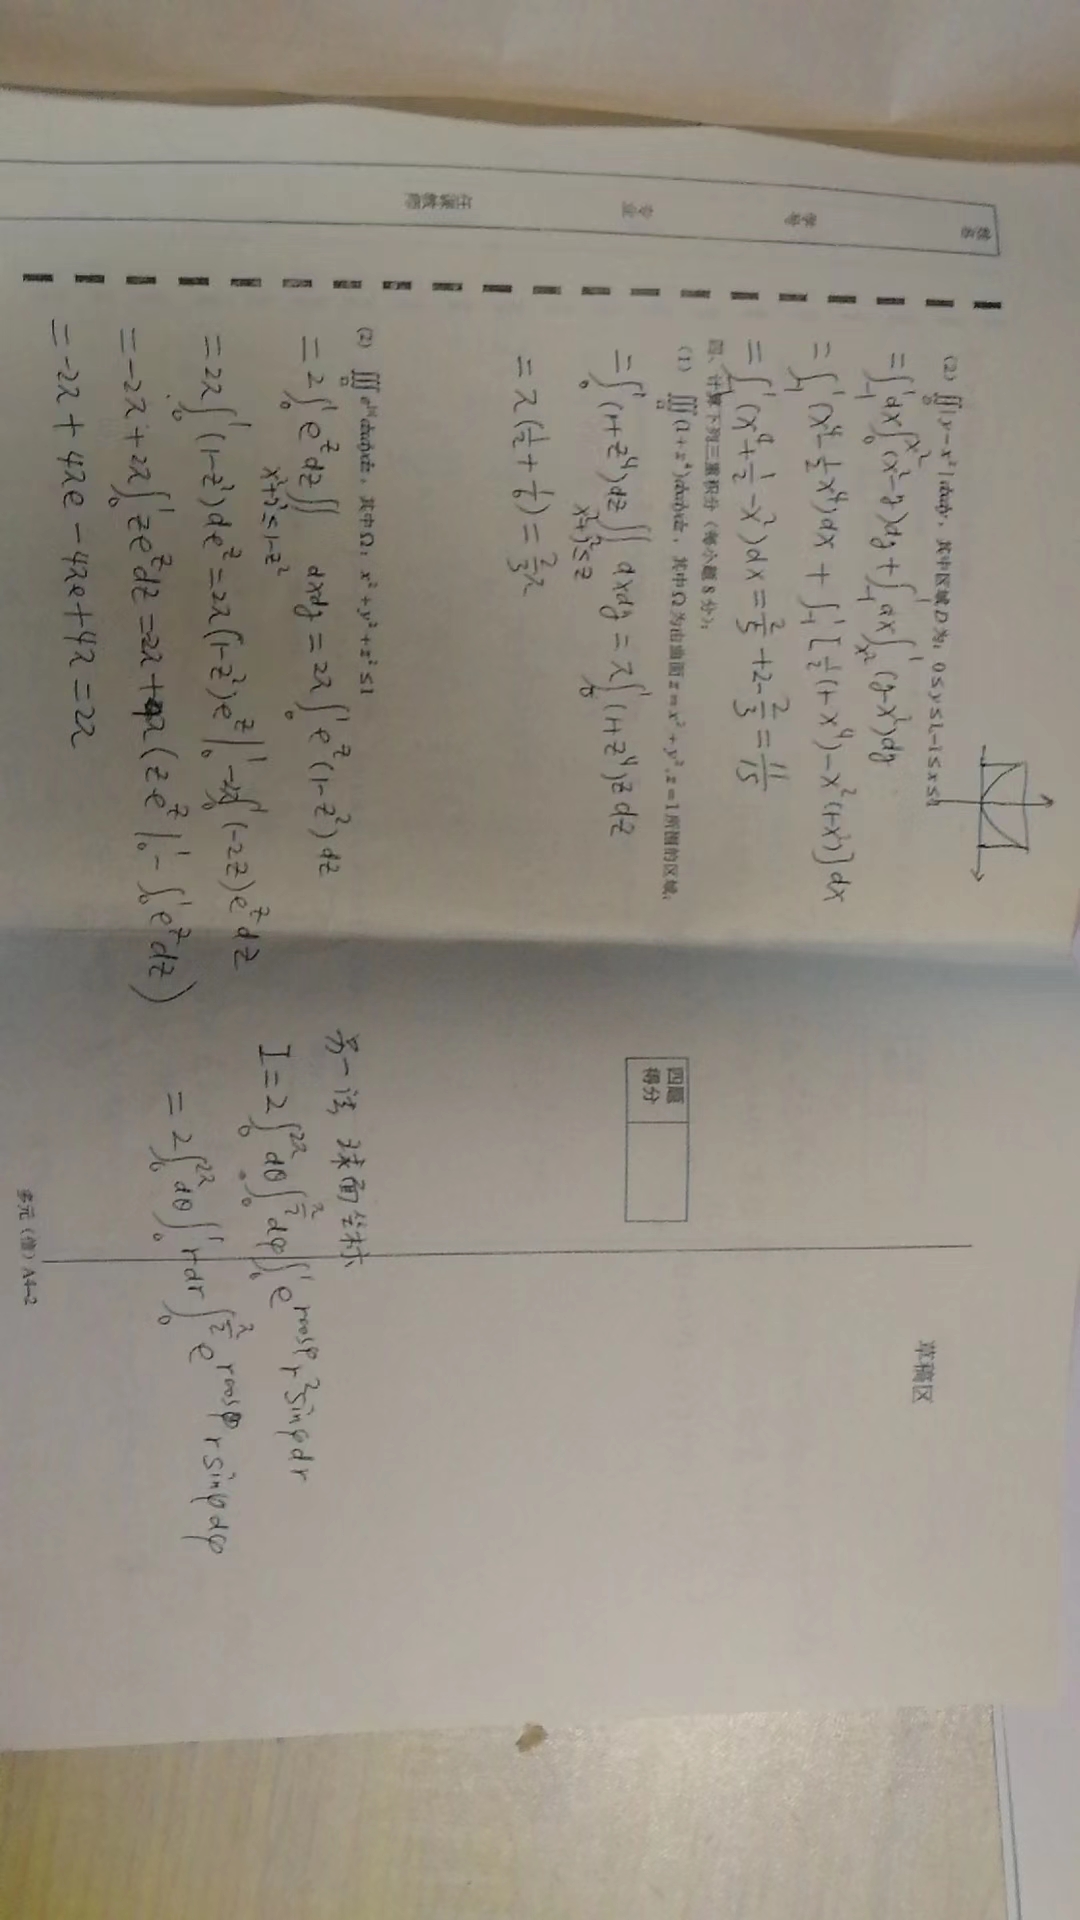 姓名
学号
专业
任课教师
(2) ∬_D |y-x²|dxdy，其中区域 D 为：0≤y≤1,-1≤x≤1
=∫_{-1}^1 dx∫_0^{x²}(x²-y)dy+∫_{-1}^1 dx∫_{x²}^1(y-x²)dy
=∫_{-1}^1(x⁴-½x⁴)dx+∫_{-1}^1[½(1-x⁴)-x²(1-x²)]dx
=∫_{-1}^1(x⁴+½-x²)dx=2/5+2-2/3=11/15
四、计算下列三重积分（每小题 8 分）：
(1) ∭_Ω(1+z⁴)dxdydz，其中 Ω 为由曲面 z=x²+y²,z=1 所围的区域；
=∫_0^1(1+z⁴)dz∬_{x²+y²≤z}dxdy=π∫_0^1(1+z⁴)zdz
=π(1/2+1/6)=2/3π
(2) ∭_Ω e^{|z|}dxdydz，其中 Ω：x²+y²+z²≤1
=2∫_0^1 e^z dz∬_{x²+y²≤1-z²}dxdy=2π∫_0^1 e^z(1-z²)dz
=2π∫_0^1(1-z²)de^z=2π(1-z²)e^z|_0^1-2π∫_0^1(-2z)e^z dz
=-2π+4π∫_0^1 ze^z dz=-2π+4π(ze^z|_0^1-∫_0^1 e^z dz)
=-2π+4πe-4πe+4π=2π
草稿区
四题
得分
另一法 球面坐标
I=2∫_0^{2π}dθ∫_0^{π/2}dφ∫_0^1 e^{rcosφ}r²sinφdr
=2∫_0^{2π}dθ∫_0^1 rdr∫_0^{π/2}e^{rcosφ}rsinφdφ
多元（信）A4-2